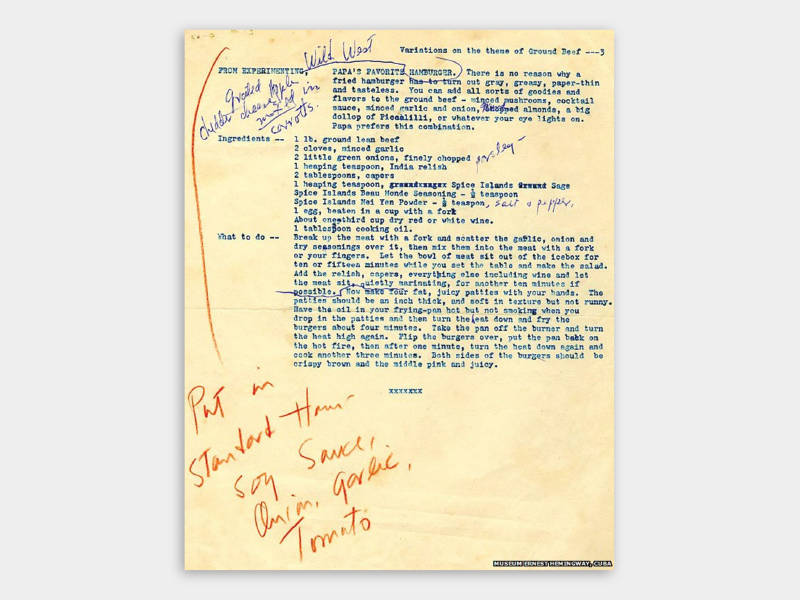 Wild West
Variations on the theme of Ground Beef ---3
FROM EXPERIMENTING, PAPA'S FAVORITE HAMBURGER. There is no reason why a
fried hamburger has to turn out gray, greasy, paper-thin
and tasteless. You can add all sorts of goodies and
flavors to the ground beef - minced mushrooms, cocktail
sauce, minced garlic and onion, almonds, a big
dollop of Piccalilli, or whatever your eye lights on.
Papa prefers this combination.
grated apple
cheddar cheese
mixed in
carrots.
Ingredients -- 1 lb. ground lean beef
2 cloves, minced garlic
2 little green onions, finely chopped parsley -
1 heaping teaspoon, India relish
2 tablespoons, capers
1 heaping teaspoon, Spice Islands Sage
Spice Islands Beau Monde Seasoning - ½ teaspoon
Spice Islands Mei Yen Powder - ½ teaspon, salt & pepper,
1 egg, beaten in a cup with a fork
About one third cup dry red or white wine.
1 tablespoon cooking oil.
What to do -- Break up the meat with a fork and scatter the garlic, onion and
dry seasonings over it, then mix them into the meat with a fork
or your fingers. Let the bowl of meat sit out of the icebox for
ten or fifteen minutes while you set the table and make the salad.
Add the relish, capers, everything else including wine and let
the meat sit, quietly marinating, for another ten minutes if
possible. Now make four fat, juicy patties with your hands. The
patties should be an inch thick, and soft in texture but not runny.
Have the oil in your frying-pan hot but not smoking when you
drop in the patties and then turn the heat down and fry the
burgers about four minutes. Take the pan off the burner and turn
the heat high again. Flip the burgers over, put the pan back on
the hot fire, then after one minute, turn the heat down again and
cook another three minutes. Both sides of the burgers should be
crispy brown and the middle pink and juicy.
xxxxxxx
Put in
Standard Ham-
Soy Sauce,
Onion, Garlic,
Tomato
MUSEUM ERNEST HEMINGWAY, CUBA